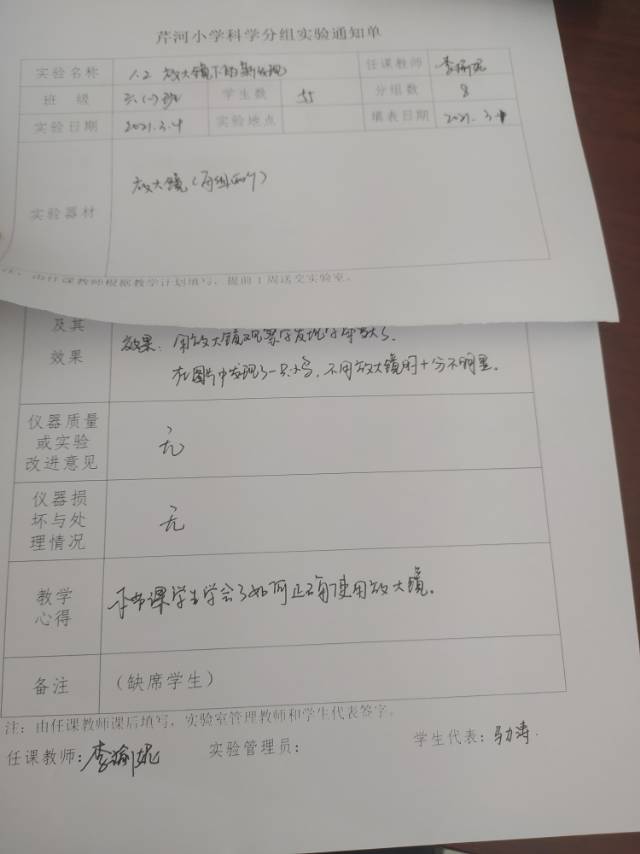 芹河小学科学分组实验通知单
实验名称 1.2 放大镜下的新发现 任课教师
班 级 六.(1)班 学生数 55 分组数 8
实验日期 2021.3.4 实验地点 填表日期 2021.3.4
实验器材 放大镜(每组四个)
注:由任课教师根据教学计划填写,提前1周送交实验室。
及其
效果
效果: 用放大镜观察字发现字体变大了.
在图片中发现了一只小鸟,不用放大镜时十分不明显.
仪器质量
或实验
改进意见
无
仪器损
坏与处
理情况
无
教学
心得
本节课学生学会了如何正确使用放大镜.
备注 (缺席学生)
注:由任课教师课后填写,实验室管理教师和学生代表签字。
任课教师: 实验管理员: 学生代表:马涛.